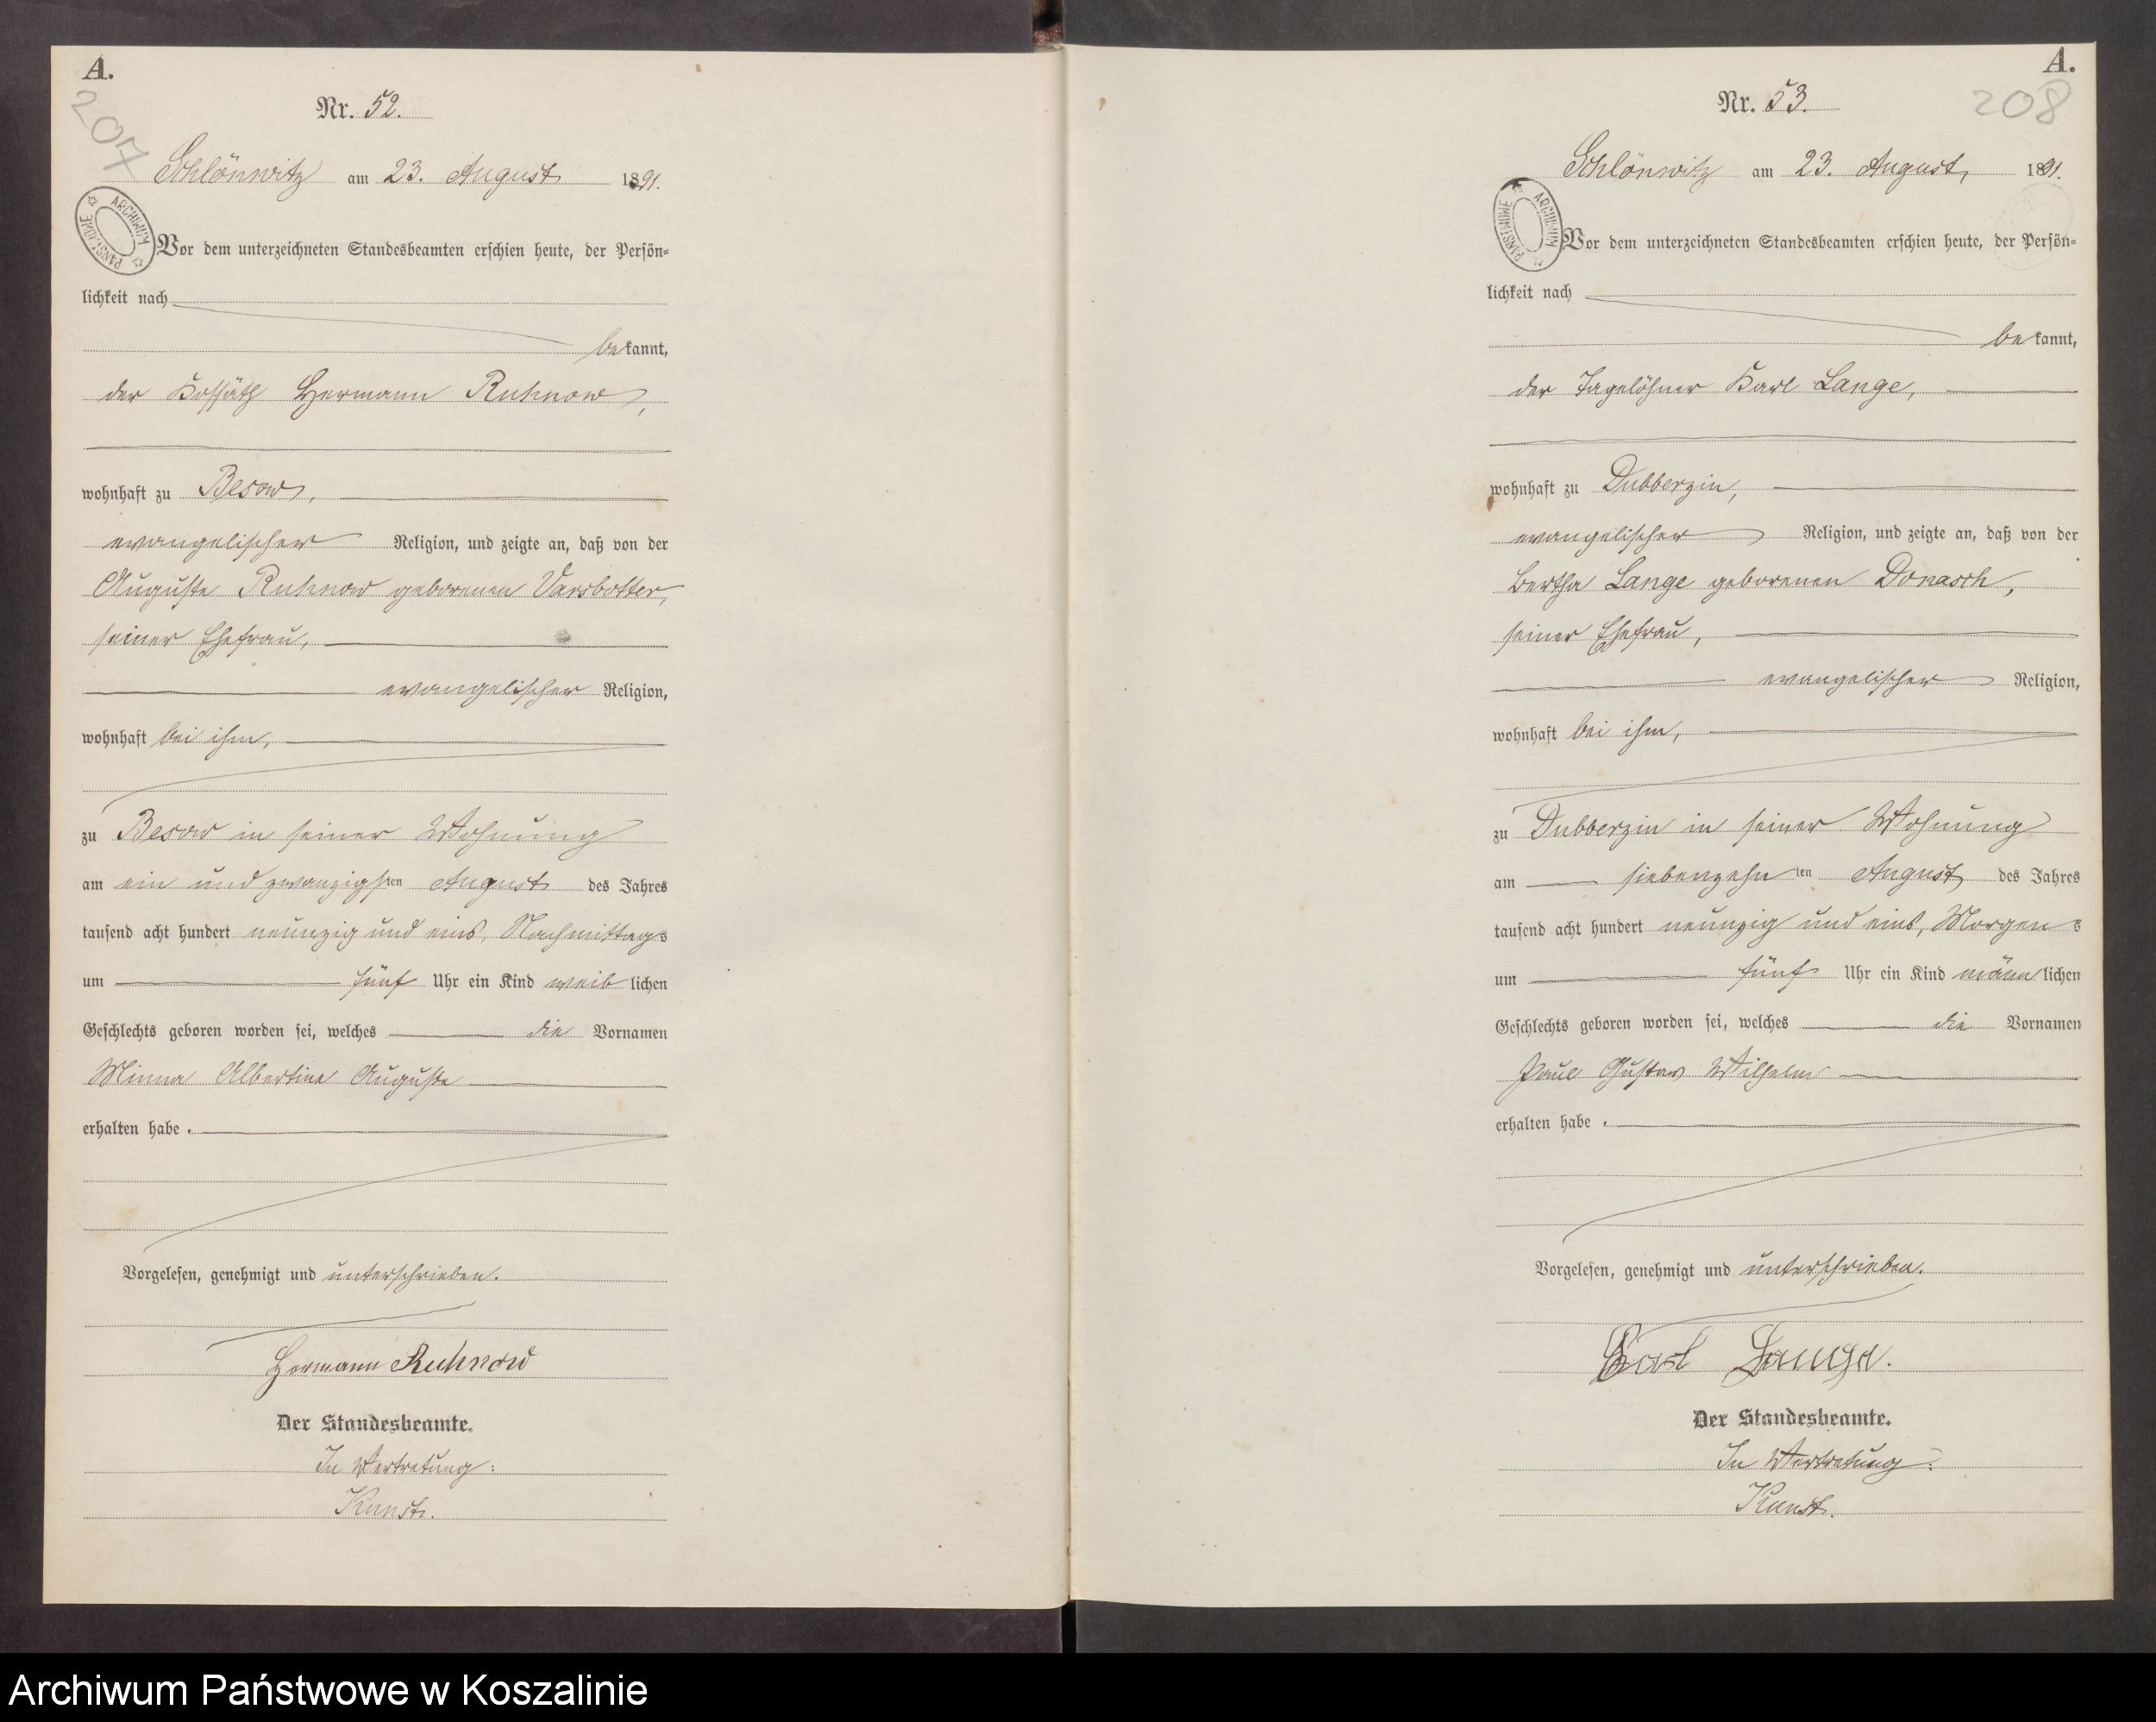 A.
207
Nr. 52.
Schlönwitz am 23. August 1891.
ARCHIWUM PAŃSTWOWE
Vor dem unterzeichneten Standesbeamten erschien heute, der Persön=
lichkeit nach
bekannt,
der Kossäth Hermann Ruhnow,
wohnhaft zu Besow,
evangelischer Religion, und zeigte an, daß von der
Auguste Ruhnow geborenen Varsbotter,
seiner Ehefrau,
evangelischer Religion,
wohnhaft bei ihm,
zu Besow in seiner Wohnung
am ein und zwanzigsten August des Jahres
tausend acht hundert neunzig und eins, Nachmittags
um fünf Uhr ein Kind weiblichen
Geschlechts geboren worden sei, welches die Vornamen
Minna Albertine Auguste
erhalten habe.
Vorgelesen, genehmigt und unterschrieben.
Hermann Ruhnow
Der Standesbeamte.
In Vertretung:
Kunst.
A.
208
Nr. 53.
Schlönwitz am 23. August, 1891.
ARCHIWUM PAŃSTWOWE
Vor dem unterzeichneten Standesbeamten erschien heute, der Persön=
lichkeit nach
bekannt,
der Tagelöhner Karl Lange,
wohnhaft zu Dubberzin,
evangelischer Religion, und zeigte an, daß von der
Bertha Lange geborenen Donasch,
seiner Ehefrau,
evangelischer Religion,
wohnhaft bei ihm,
zu Dubberzin in seiner Wohnung
am siebenzehnten August des Jahres
tausend acht hundert neunzig und eins, Morgens
um fünf Uhr ein Kind männlichen
Geschlechts geboren worden sei, welches die Vornamen
Paul Gustav Wilhelm
erhalten habe.
Vorgelesen, genehmigt und unterschrieben.
Karl Lange.
Der Standesbeamte.
In Vertretung:
Kunst.
Archiwum Państwowe w Koszalinie